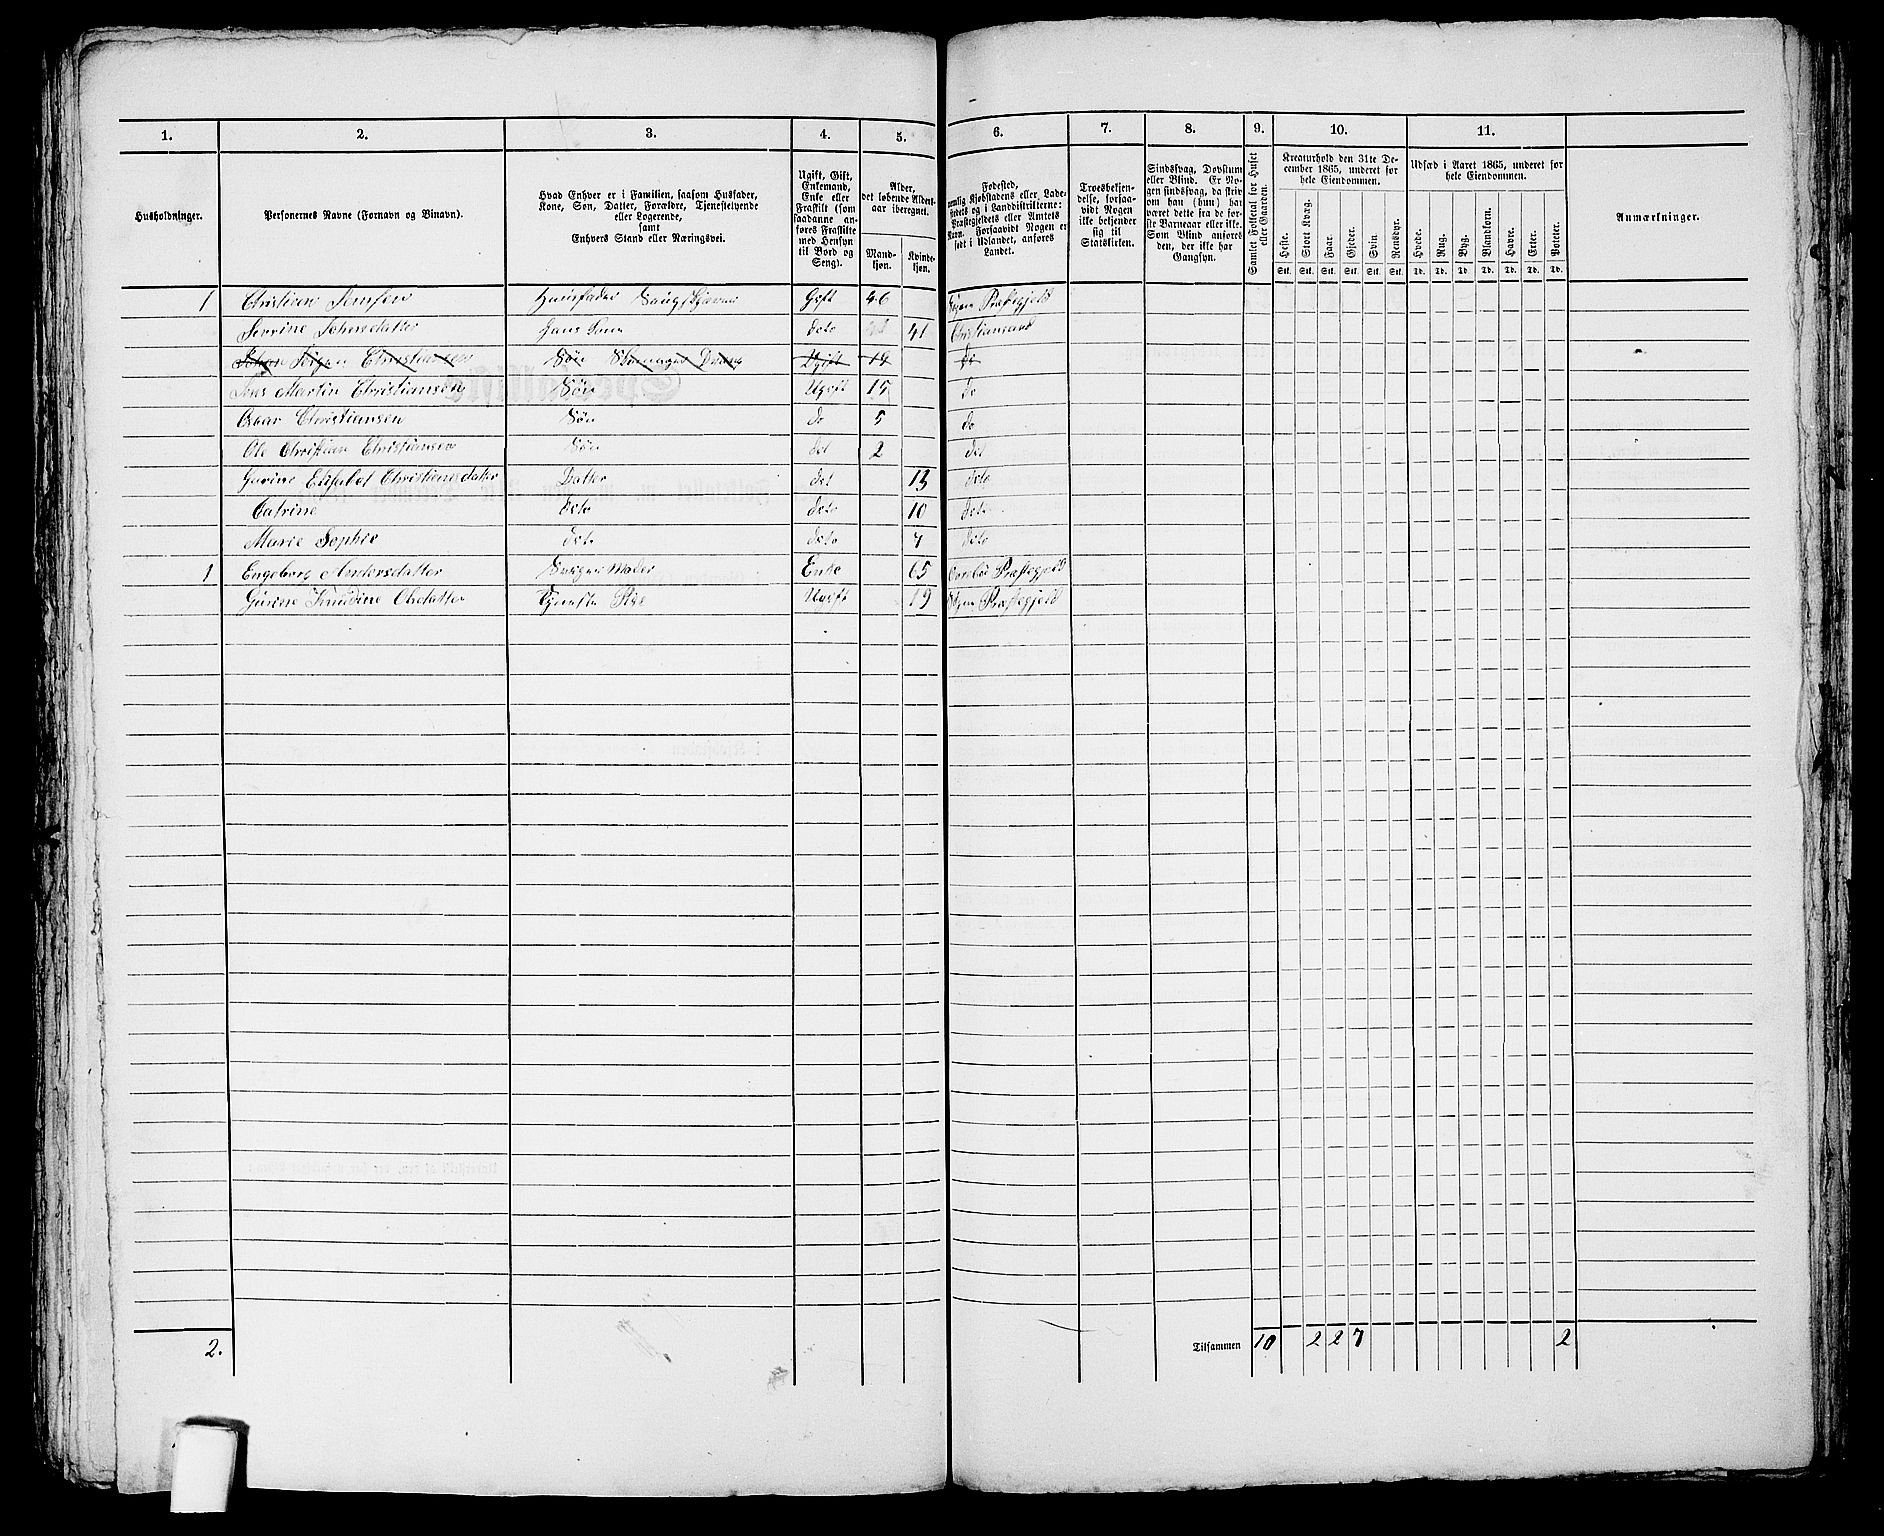 1. 2. 3. 4. 5. 6. 7. 8. 9. 10. 11.
Husholdninger.
Personernes Navne (Fornavn og Binavn).
Hvad Enhver er i Familien, saasom Husfader,
Kone, Søn, Datter, Forældre, Tjenestetyende
eller Logerende,
samt
Enhvers Stand eller Næringsvei.
Ugift, Gift,
Enkemand,
Enke eller
Fraskilt (som
saadanne an-
føres Fraskilte
med Hensyn
til Bord og
Seng).
Alder,
det løbende Alders-
aar iberegnet.
Mand-
kjøn.
Kvinde-
kjøn.
Fødested,
nemlig Kjøbstadens eller Lade-
stedets og i Landdistrikterne:
Præstegjeldets eller Amtets
Navn. Forsaavidt Nogen er
født i Udlandet, anføres
Landet.
Troesbekjen-
delse, forsaa-
vidt Nogen
ikke bekjender
sig til
Statskirken.
Sindssvag, Døvstum
eller Blind. Er No-
gen sindssvag, da skriv
om han (hun) har
været dette fra de før-
ste Barneaar eller ikke.
Som Blind anføres
den, der ikke har
Gangsyn.
Samlet Folketal for Huset
eller Gaarden.
Kreaturhold den 31te De-
cember 1865, underet for
hele Eiendommen.
Heste. Stort Kvæg. Faar. Gjeder. Svin. Rensdyr.
Stk. Stk. Stk. Stk. Stk. Stk.
Udsæd i Aaret 1865, underet for
hele Eiendommen.
Hvede. Rug. Byg. Blandkorn. Havre. Erter. Poteter.
Td. Td. Td. Td. Td. Td. Td.
Anmærkninger.
1 Christian Jensen Huusfader Gift 46 Præstegjeld
deto 41 Christiansand
Jørgen Christiansen Søn Dreng Ugift 19 do
Jens Martin Christiansen Søn Ugift 15 do
Oscar Christiansen Søn do 5 do
Ole Christian Christiansen Søn det 2 det
Elisabet Christiansdatter Datter det 13 deto
Catrine deto deto 10 deto
Marie Sophie deto deto 7 deto
1 Engeborg Andersdatter Moder Enke 65 Præstegjeld
Gurine Knudine Olsdatter Tjeneste Pige Ugift 19 Præstegjeld
2. Tilsammen 10 2 2 7 2